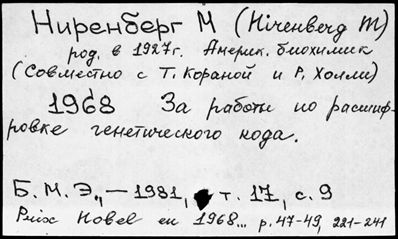 Ниренберг М (Nirenberg M)
род. в 1927г. Америк. биохимик
(Совместно с Т. Кораной и Р. Холли)
1968 За работы по расшиф-
ровке генетического кода.
Б. М. Э., — 1981, т. 17, с. 9
Prix Nobel en 1968... p. 47-49, 221-241